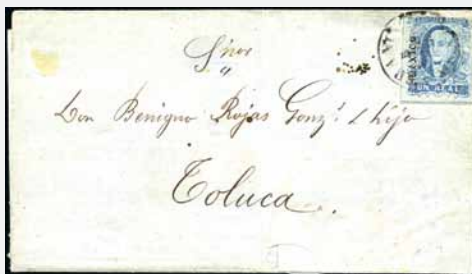 Sñor
"
Don Benigno Rojas Gonzz é hijo
Toluca
MEXICO
UN REAL